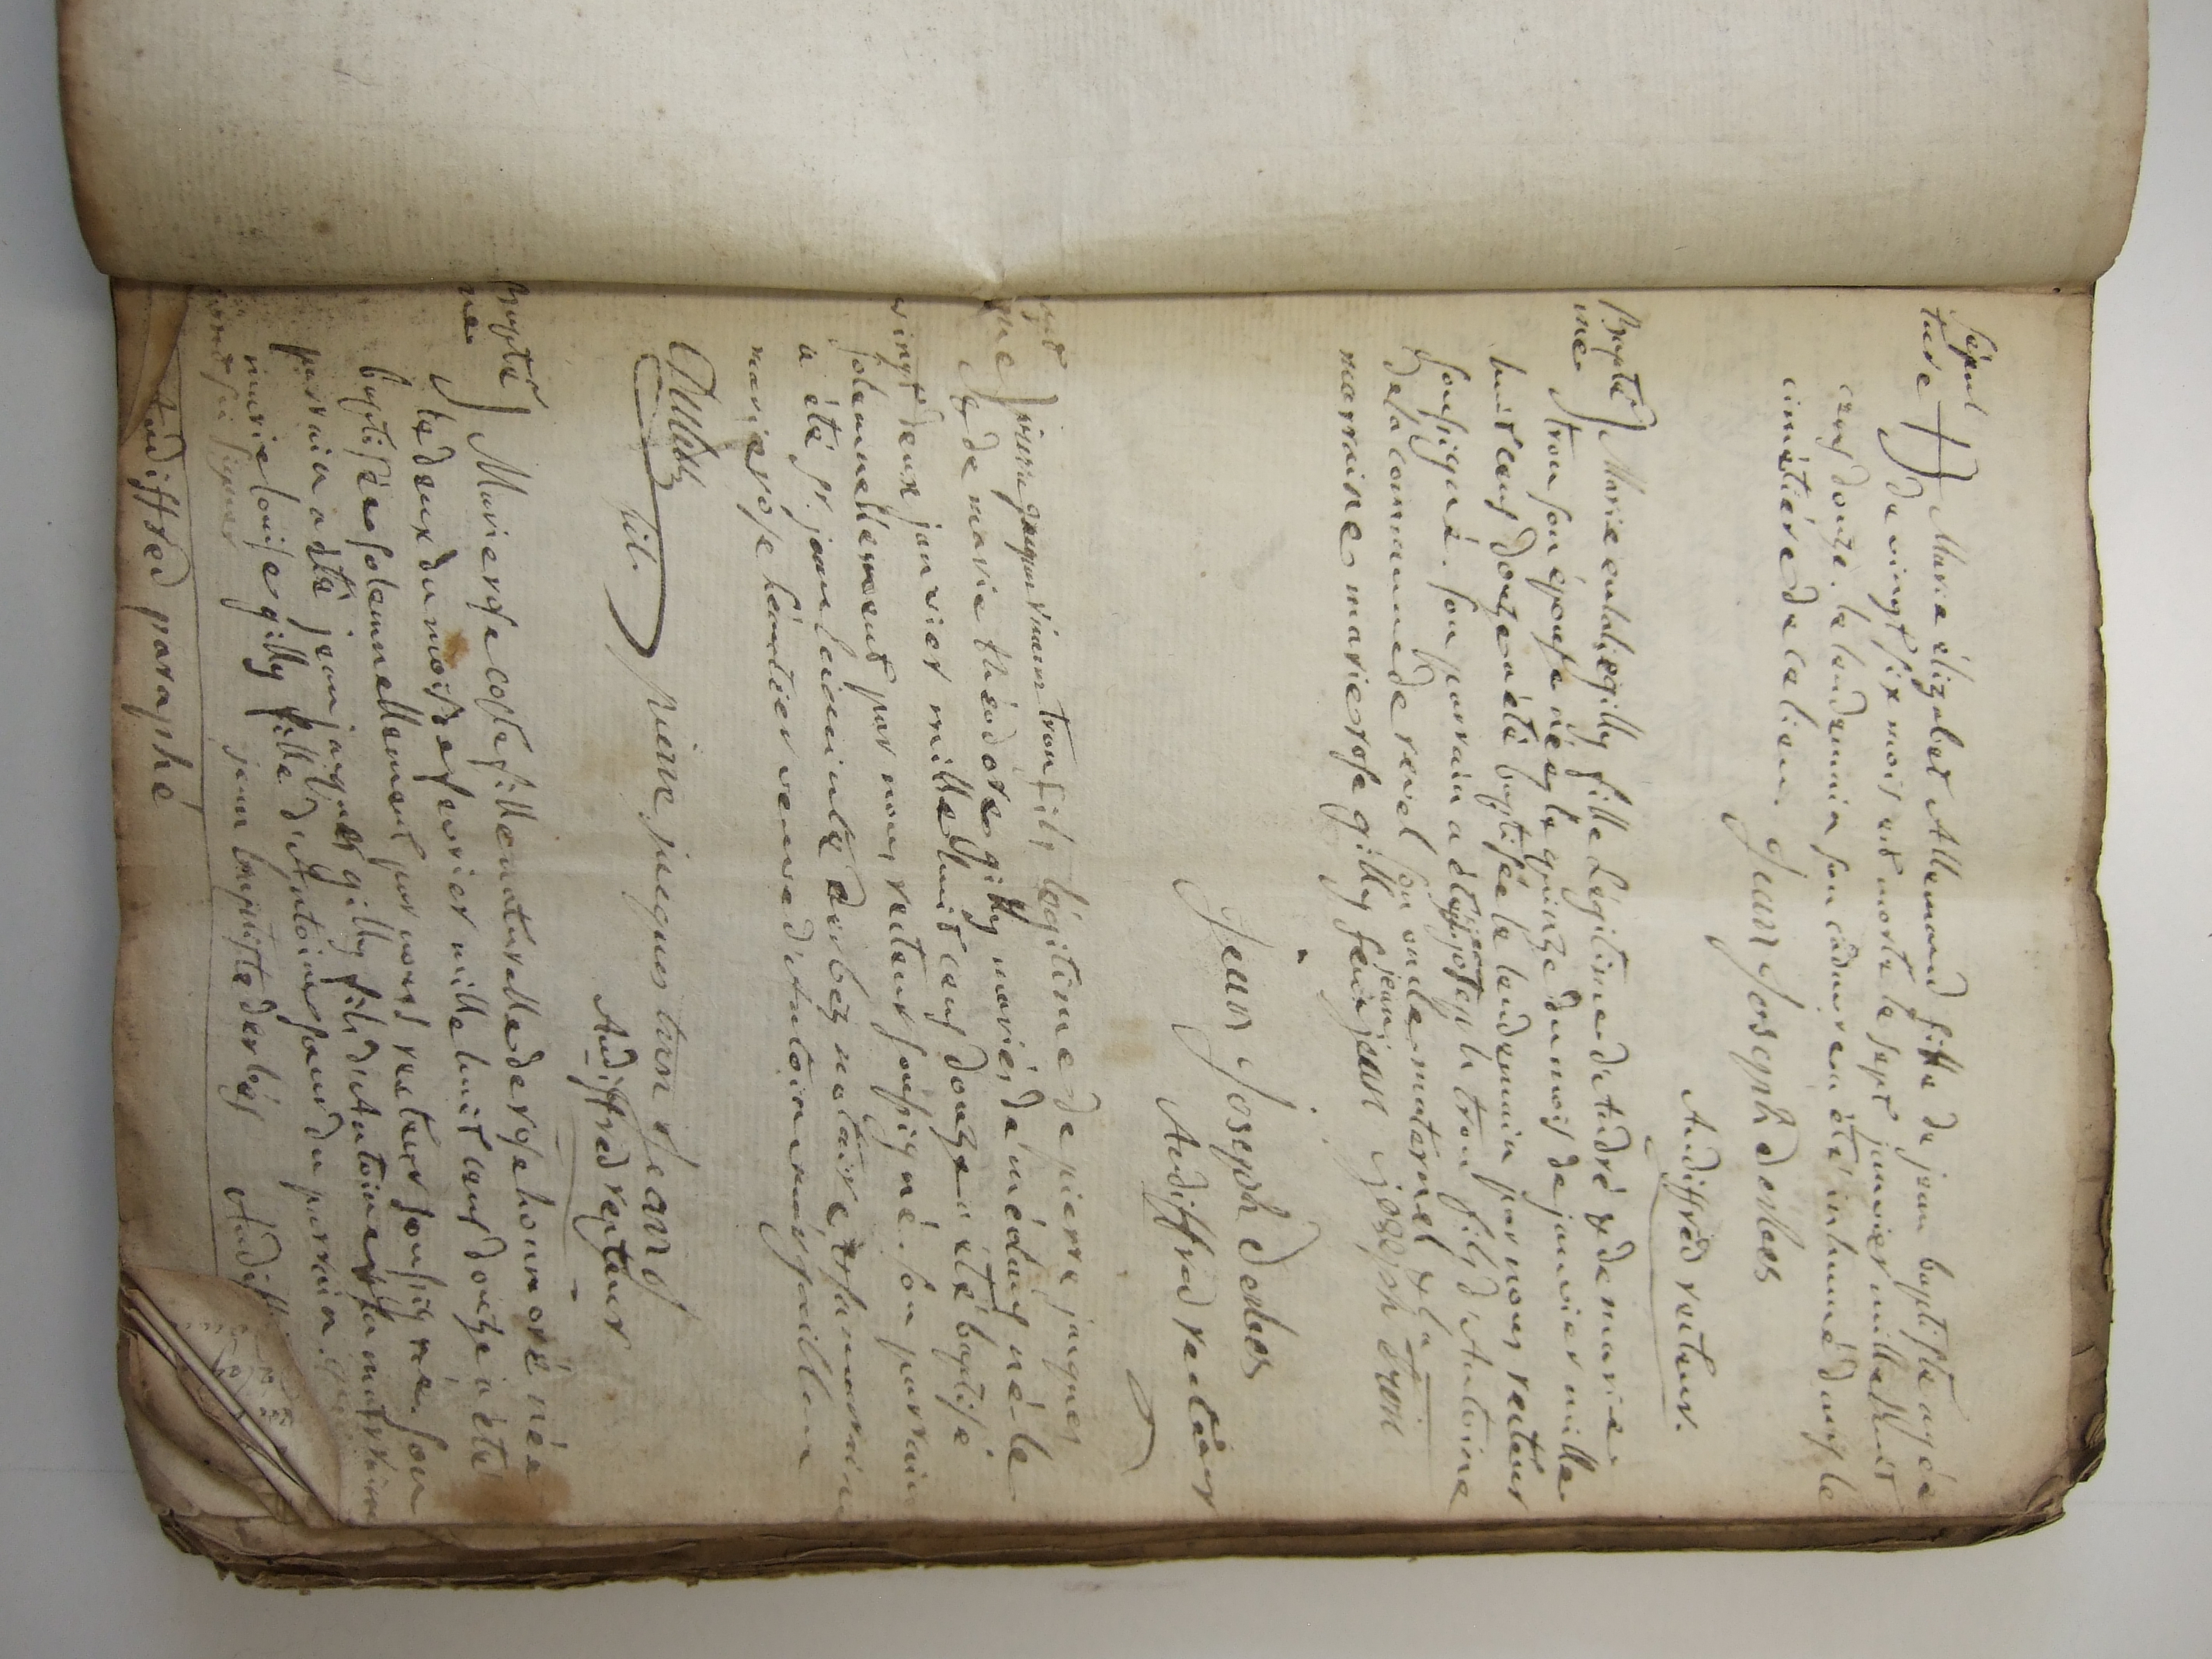 Sépul
ture
Marie élizabet Allemand fille de jean baptiste agée
de vingt six mois est morte le sept janvier mille huit
cens douze. le lendemain son cadavre a été inhumé dans le
cimétière de ce lieu.
Audiffred recteur.
Jean Joseph derbes
Baptê
me
Marie eulalie gilly fille Légitime d'André & de marie
tron son épouse née le quinze du mois de janvier mille
huit cens douze a été baptisée le lendemain par nous recteur
soussigné. son parrain a été joseph tron fils d'Antoine
de la commune de revel son oncle maternel & la
marraine marie rose gilly jean joseph tron
Jean Joseph derbes
Audiffred recteur
me
pierre jaques tron fils légitime de pierre jaques
& de marie théodore gilly mariés de médans né le
vingt deux janvier mille huit cens douze a été baptisé
solennellement par nous recteur soussigné. son parrain
a été jean hiacinte derbez notaire & sa marraine
marie rose veuve d'Antoine
pierre jaques tron Jean
Audiffred recteur
Baptê
me
Marie rose fille naturelle de rose honnoré née
le deux du mois de fevrier mille huit cens douze a été
baptisée solennellement par nous recteur soussigné. son
parrain a été jean jaques gilly fils d'Antoine & sa marraine
marie louise gilly fille d'Antoine soeur du parrain.
signer jean baptiste derbés Audiff
Audiffred paraphé